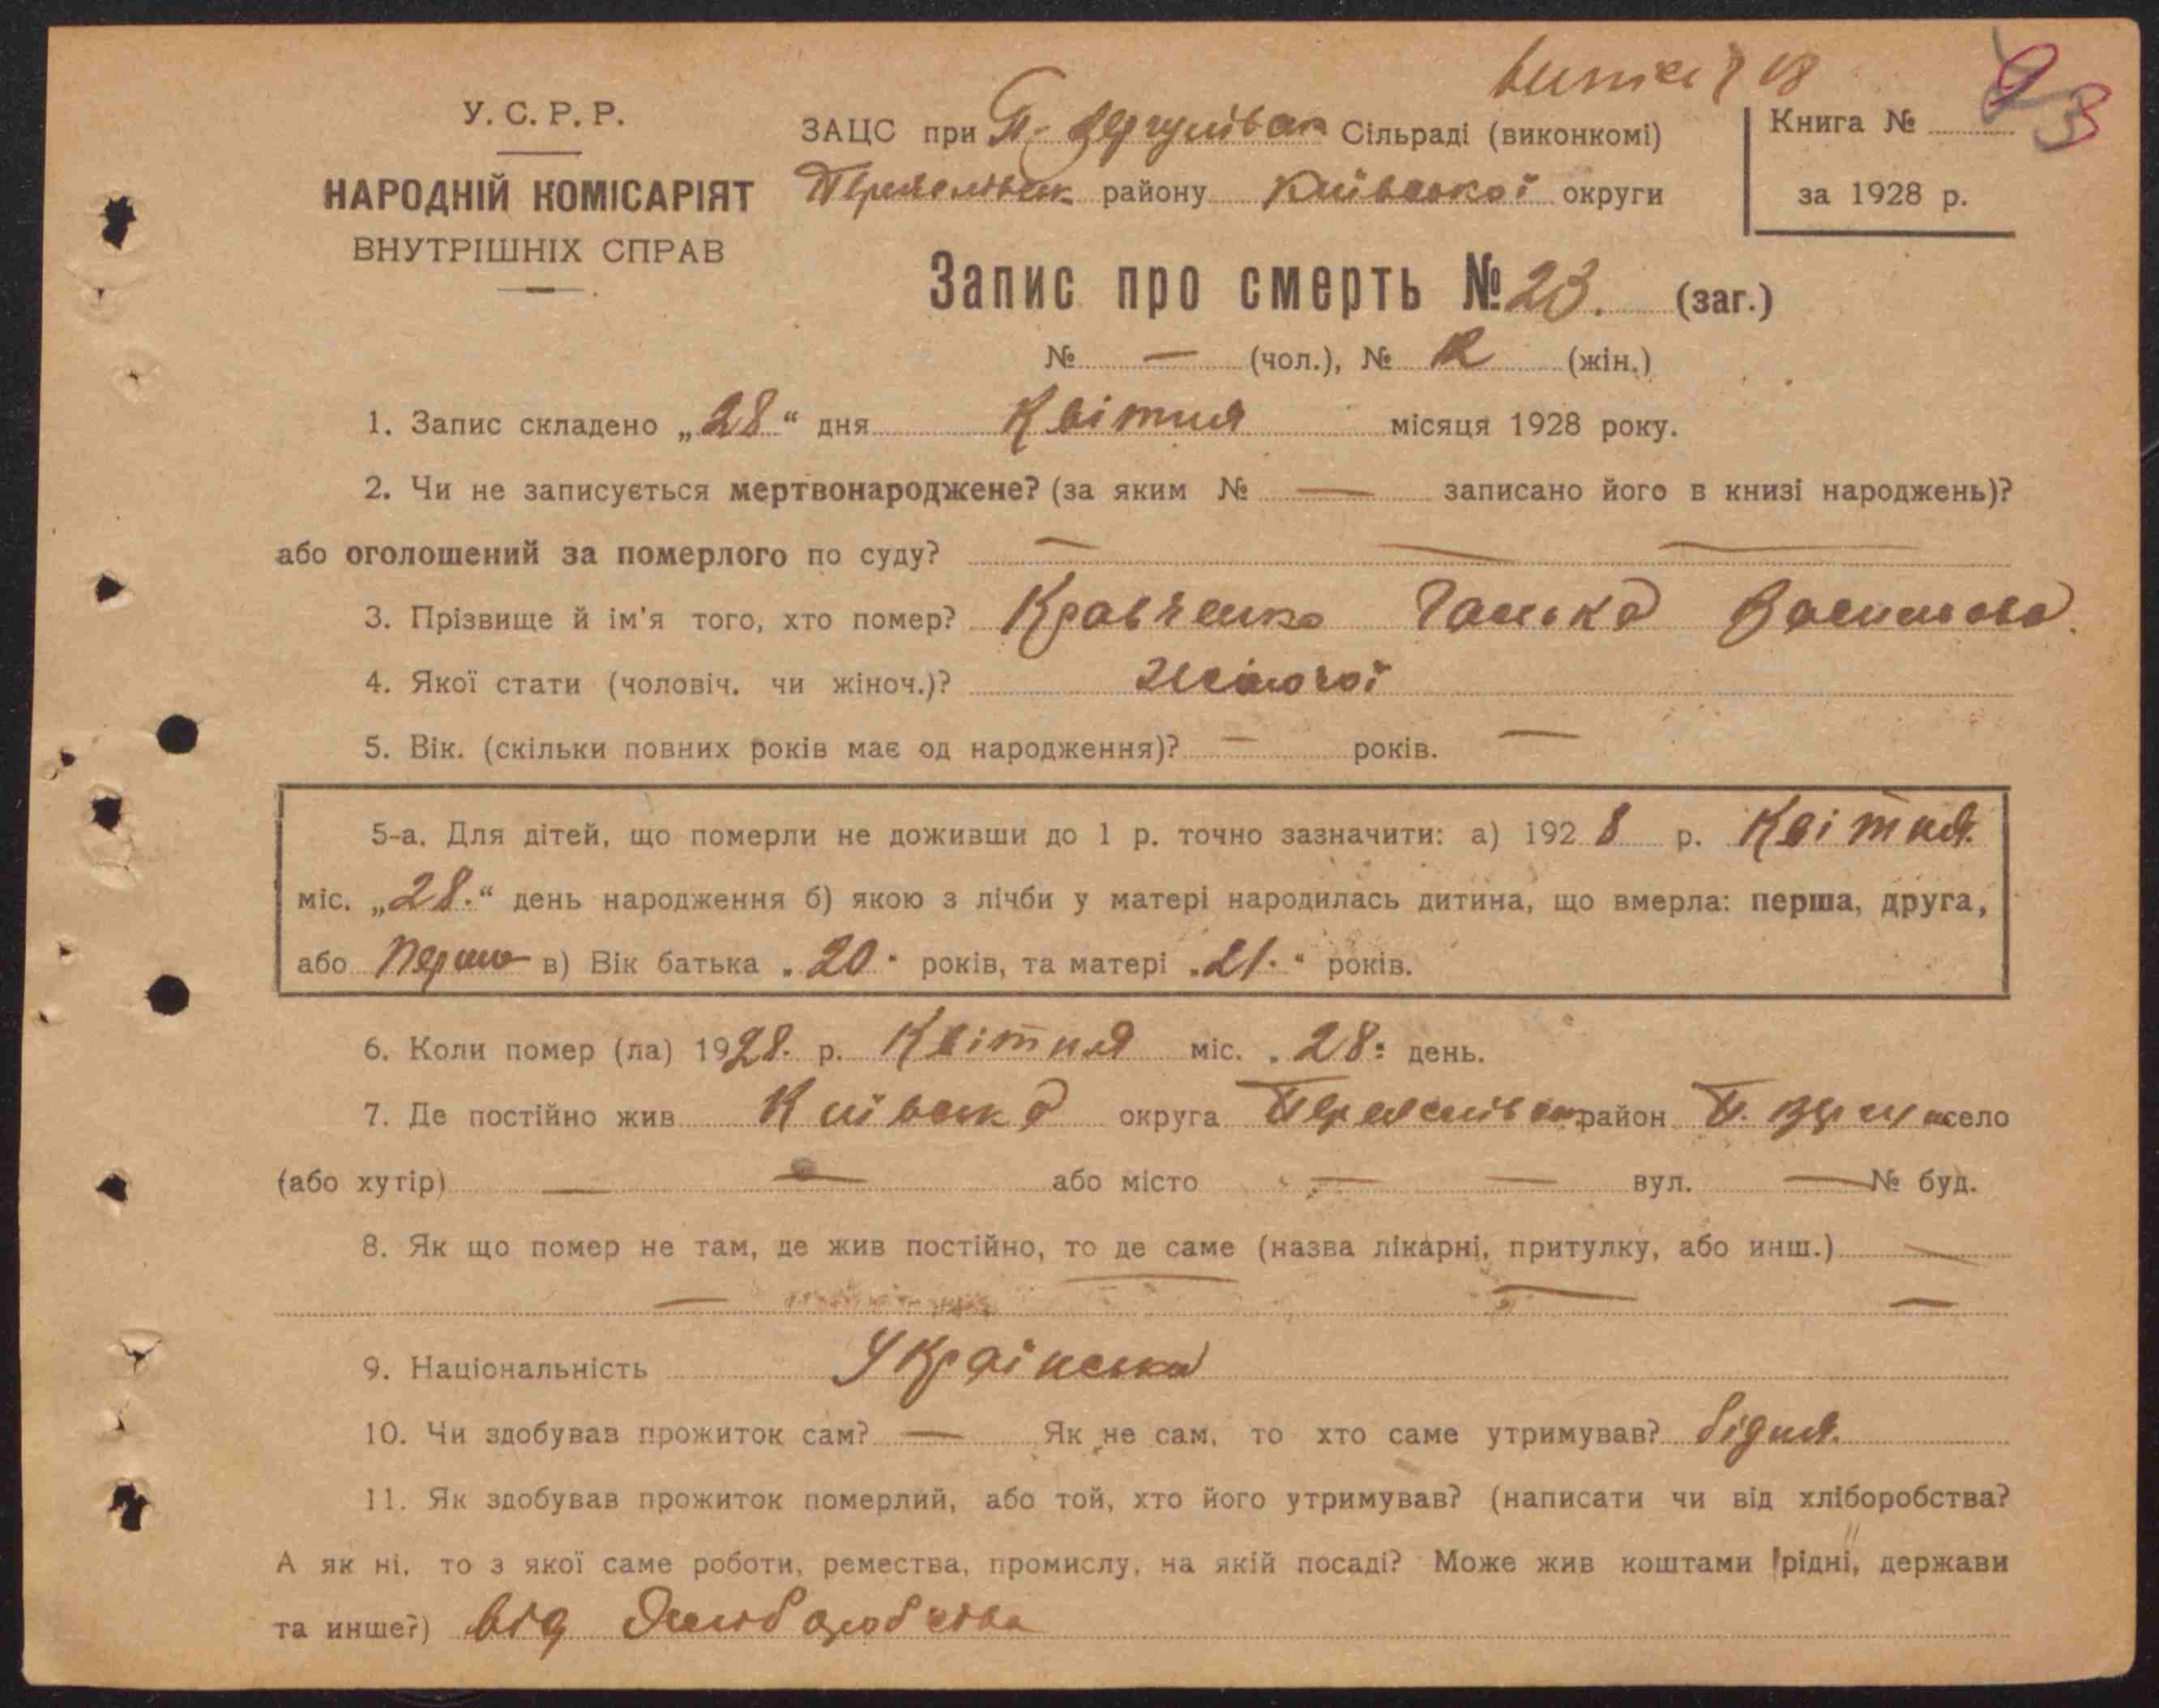 У. С. Р. Р.
НАРОДНІЙ КОМІСАРІЯТ
ВНУТРІШНІХ СПРАВ
ЗАЦС при Сільраді (виконкомі)
району Київської округи
Книга №
за 1928 р.
Запис про смерть № 23. (заг.)
№ — (чол.), № (жін.)
1. Запис складено „28“ дня Квітня місяця 1928 року.
2. Чи не записується мертвонароджене? (за яким № — записано його в книзі народжень)?
або оголошений за померлого по суду? — — —
3. Прізвище й ім'я того, хто помер? Кравченко Ганька Василова
4. Якої стати (чоловіч. чи жіноч.)? Жіночої
5. Вік. (скільки повних років має од народження)? — років. —
5-а. Для дітей, що померли не доживши до 1 р. точно зазначити: а) 1928 р. Квітня
міс. „28.“ день народження б) якою з лічби у матері народилась дитина, що вмерла: перша, друга,
або перша в) Вік батька „20“ років, та матері „21.“ років.
6. Коли помер (ла) 1928. р. Квітня міс. „28“ день.
7. Де постійно жив Київська округа район село
(або хутір) — — або місто — — вул. — № буд.
8. Як що помер не там, де жив постійно, то де саме (назва лікарні, притулку, або инш.) —
— — —
9. Національність Українська
10. Чи здобував прожиток сам? — Як не сам, то хто саме утримував? бідня.
11. Як здобував прожиток померлий, або той, хто його утримував? (написати чи від хліборобства?
А як ні, то з якої саме роботи, ремества, промислу, на якій посаді? Може жив коштами рідні, держави
та инше?) від хліборобства